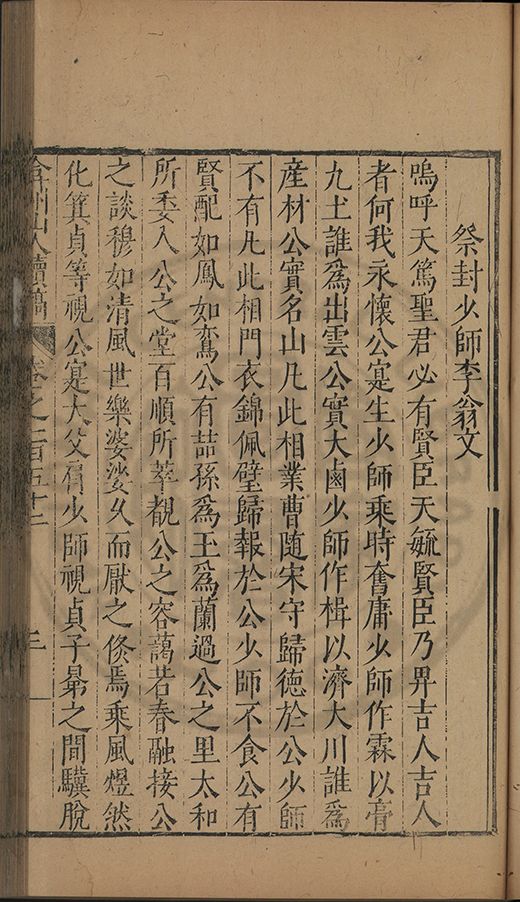 祭封少師李翁文
嗚呼天篤聖君必有賢臣天毓賢臣乃畀吉人吉人
者何我永懷公寔生少師乘時奮庸少師作霖以膏
九土誰爲出雲公實大鹵少師作楫以濟大川誰爲
産材公實名山凡此相業曹隨宋守歸德於公少師
不有凡此相門衣錦佩璧歸報於公少師不食公有
賢配如鳳如鸞公有喆孫爲玉爲蘭過公之里太和
所委入公之堂百順所萃覩公之容藹若春融接公
之談穆如清風世樂婆娑久而厭之倐焉乘風熤然
化箕貞等視公寔大父肩少師視貞子曩之間驥脫
弇州山人續稿 卷之一百五十二 三